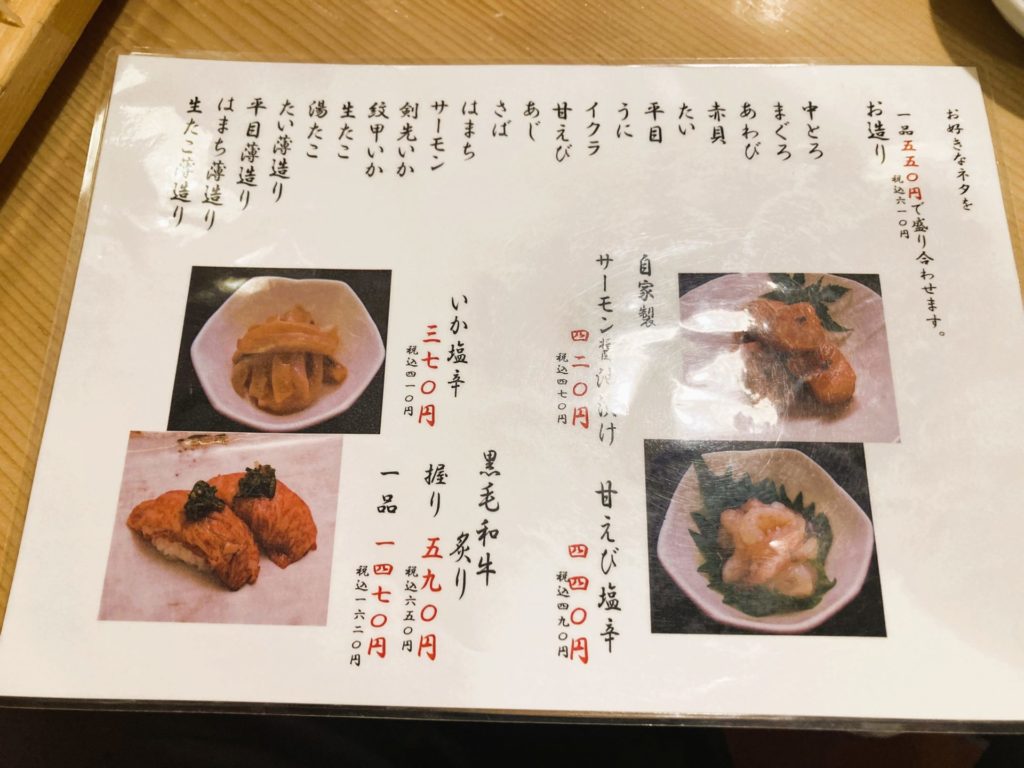 お好きなネタを
一品五五〇円で盛り合わせます。
税込六一〇円
お造り
中とろ
まぐろ
あわび
赤貝
たい
平目
うに
イクラ
甘えび
あじ
さば
はまち
サーモン
剣先いか
紋甲いか
生たこ
湯たこ
たい薄造り
平目薄造り
はまち薄造り
生たこ薄造り
自家製
サーモン醤油漬け
四二〇円
税込四七〇円
いか塩辛
三七〇円
税込四一〇円
甘えび塩辛
四四〇円
税込四九〇円
黒毛和牛
炙り
握り 五九〇円
税込六五〇円
一品 一四七〇円
税込一六二〇円